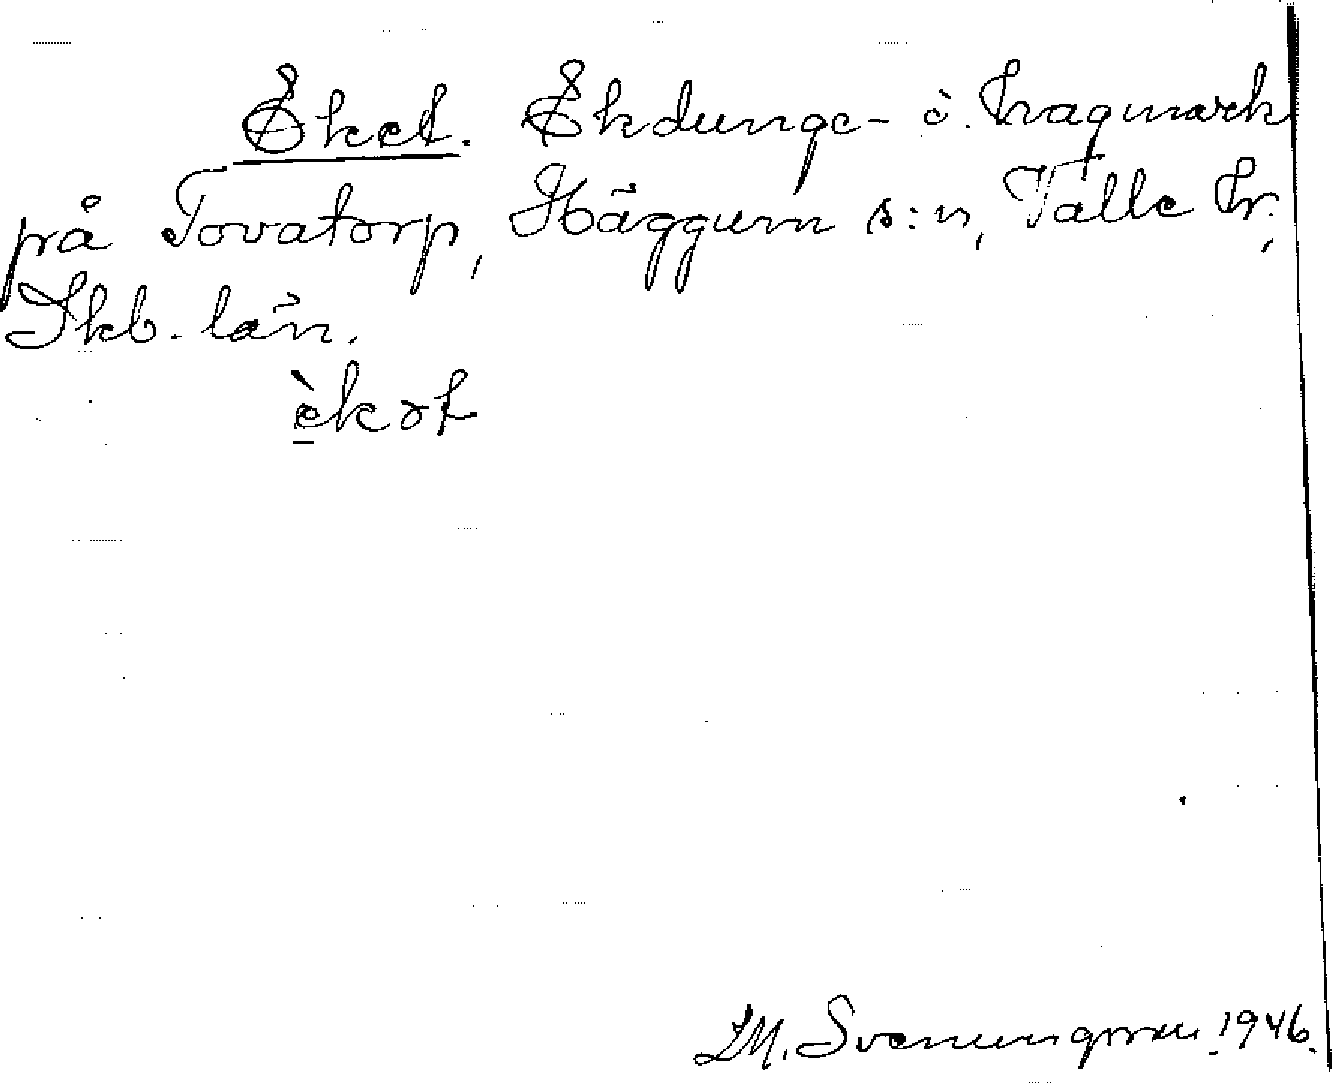 Eket. Ekdunge- o. hagmark
på Tovatorp, Häggum s:n, Valle hr.,
Skb. län.
è̱kət
I.M. Svenungsson 1946.